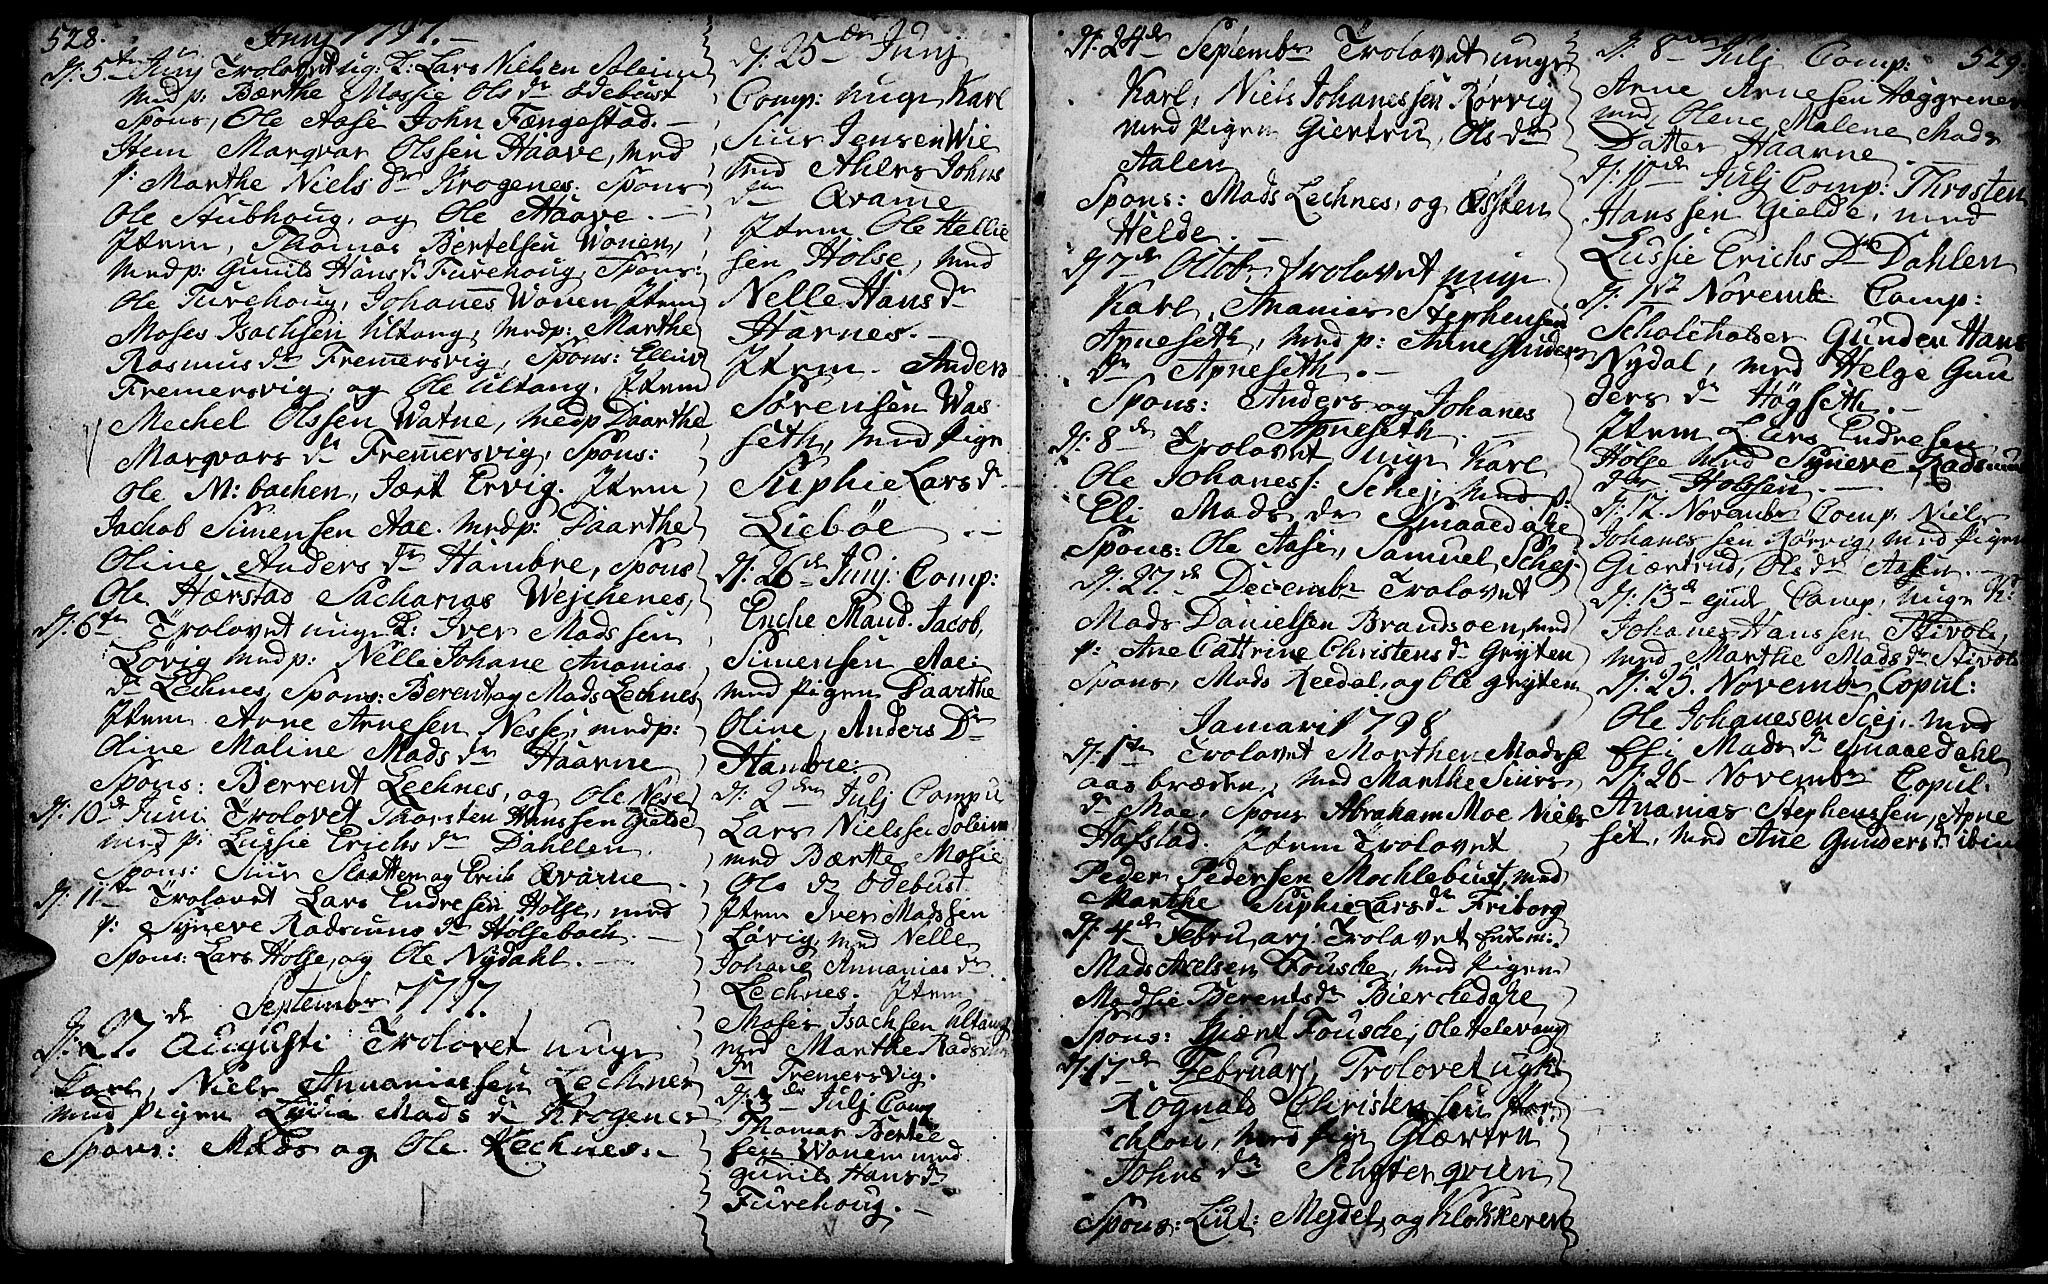 528.
Junj 1797.
D: 5te Junj Trolovet ug: K: Lars Nielsen Soleim
med p: Bærthe Mossie Ols dr Odebust
Spons, Ole Aase John Fængestad.
Item Marqvar Olssen Haave, med
p: Marthe Niels dr Krogenes. Spons
Ole Stubhoug, og Ole Haave.
Item, Thomas Bertelsen Wonen,
med p: Gunild Hans dr Furehoug, Spons:
Ole Furehoug, Johanes Wonen Item
Moses Isachsen Ultang, med p: Marthe
Rasmus dr Fremersvig, Spons: Elling
Fremersvig, og Ole Ultang. Item
Mechel Olssen Watne, med p Daarthe
Marqvars dr Fremersvig, Spons:
Ole M: bachen, Jært Ervig. Item
Jachob Simensen Aae. med p: Daarthe
Oline Anders dr Hambre, Spons
Ole Hærstad Sacharias Wejchenes,
D: 6te Trolovet unge K: Iver Madssen
Lovig med p: Nelle Johane Ananias
dr Lechnes, Spons: Berent og Mads Lechnes
Item Arne Arnesen Nesse, med p:
Oline Maline Mads dr Haarne
Spons: Berrent Lechnes, og Ole Nese
D: 10de Juni Trolovet Thorsten Hanssen Gielde
med p: Lussie Erichs dr Dahllen.
Spons: Siur Slatten og Erich Qvarne
D: 11te Trolovet Lars Endresen Holse, med
p: Syneve Radsmuns dr Holsebach.
Spons: Lars Holse, og Ole Nydahl.
September 1797.
D: 27de Augusti Trolovet unge
Karl, Niels Annaniassen Lechnes
med Pigen Lussia Mads dr Krogenes
Spons: Mads og Ole Lechnes.
D: 25de Junj
Comp: unge Karl
Siur Jensen Wie
med Ahlers Johns
dr Qvame
Item Ole Hellie
sen Holse, med
Nelle Hans dr
Harnes.
Item Anders
Sørensen Was
seth, med Pige
Suphie Lars dr
Liebøe
D: 26de Junj: Comp:
Enche Mand. Jacob,
Simensen Aae:
med Pigen Daarthe
Oline, Anders Dr
Hambre:
D: 2den Julj Compu
Lars Nielssen Soleim
med Bærtte Mosie
Ols dr Odebust.
Item Iver Madssen
Lovig, med Nelle
Johane Annanias dr
Lechnes. Item
Moses Isachsen Ultang
med Marthe Radsmuns
dr Fremersvig.
D: 3de Julj Comp
Thomas Bertel
sen Wonem med
gunild Hans dr
Furehoug.
D: 24de Septembr Trolovet unge
Karl, Niels Johanessen Rørvig
med Pigen Giertru, Ols dr
Aalen
Spons: Mads Lechnes, og Østen
Helde.
D: 7de Octobr trolovet unge
Karl, Ananias Stephensen
Apneseth, med p: Anne Gunders
dr Apneseth.
Spons: Anders og Johanes
Apneseth.
D: 8de Trolovet unge Karl
Ole Johaness: Schej, med p:
Eli Mads dr Smaaedahle
Spons: Ole Aase, Samuel Schej
D: 27de Decembr Trolovet
Mads Danielsen Brandsoen, med
p: Ane Cattrine Christens dr Gryten
Spons, Mads Reedal, og Ole gryten
Januari 1798
D: 1te Trolovet Morthen Madsse
aas bræcken, med Marthe Siurs
dr Moe, Spons Abraham Moe Niels
Hafstad. Item Trolovet
Peder Pedersen Mochlebust, med
Marthe Suphie Lars dr Friborg
D: 4de Februarj Trolovet Enkem:
Mads Axelsen Fousche, med Pigen
Madsie Berents dr Bierchedahe
Spons: Giært Fousche, Ole Helevang
D: 17de Februarj, Trolovet ugk
Rognald Christensen Hor
chlou, med pige Giærten
Johns dr Schotergvien
Spons: Liut: Mejdel, og Klokkeren
529.
D: 8de Julj Comp:
Arne Arnesen Haggrenes
med, Olene Malene Mads
Datter Haarne
D: 10de Julj Comp: Throsten
Hanssen Gielde, med
Lussie Erichs Dr Dahlen
D: 1ste Novembr Comp:
Scholeholder Gunder Hans
Nydal, med Helge Gun
ders dr Høgseth.
Item Lars Endresen
Holse med Syneve Radsmuns
dtr Holssen.
D: 12. Novembr Comp, Niels
Johanessen Rørvig, med Pigen
Giærtrud, Ols dr Aasen.
D: 13de ejusd Comp, unge K:
Johanes Hanssen Stivole,
med Marthe Mads dr Stivole
D: 25. Novembr Copul:
Ole Johanesen Sjej. med
Eli Mads dr Smaaedahl
D: 26 Novembr Copul.
Ananias Stephenssen, Apne
set, med Ane Gunders dr ibid